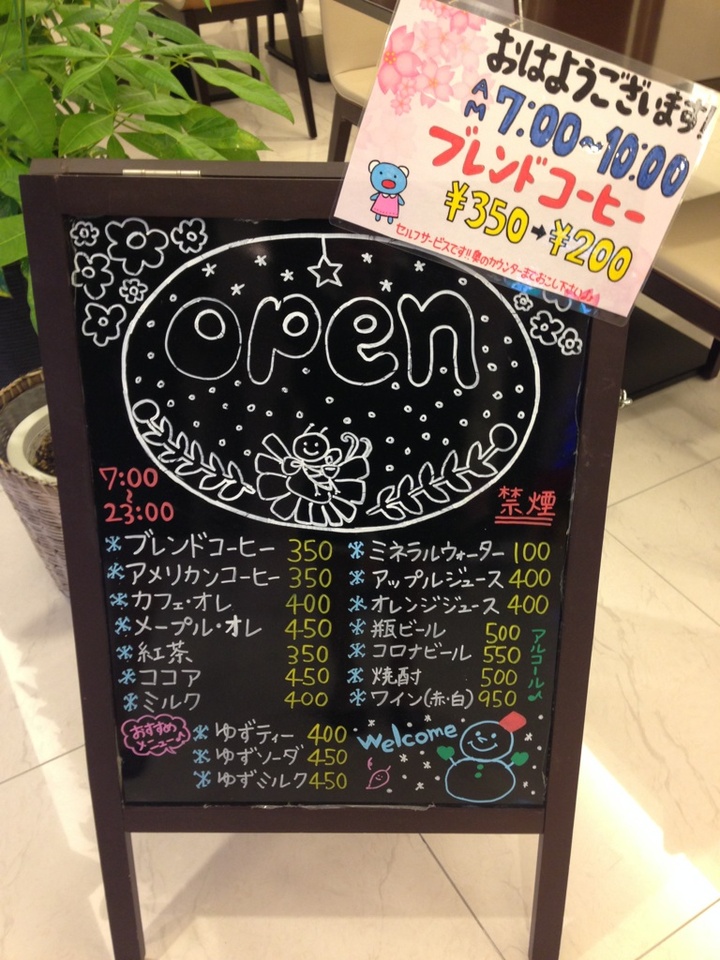 おはようございます!
AM 7:00~10:00
ブレンドコーヒー
¥350→¥200
セルフサービスです!!奥のカウンターまでお越し下さい♪
open
7:00
~
23:00
禁煙
ブレンドコーヒー 350
アメリカンコーヒー 350
カフェ・オレ 400
メープル・オレ 450
紅茶 350
ココア 450
ミルク 400
ミネラルウォーター 100
アップルジュース 400
オレンジジュース 400
瓶ビール 500
コロナビール 550
焼酎 500
ワイン(赤・白) 950
アルコール♪
おすすめ
メニュー♪
ゆずティー 400
ゆずソーダ 450
ゆずミルク 450
welcome